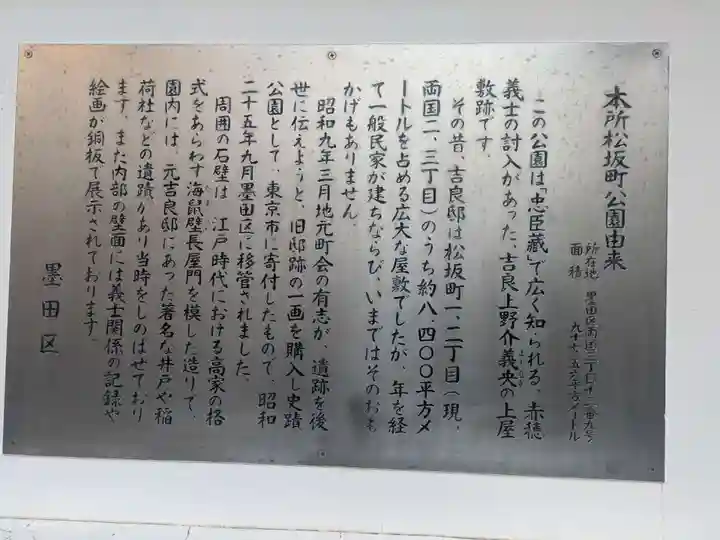 本所松坂町公園由来
所在地 墨田区両国三丁目十三番九号
面積 九十七・五平方メートル
この公園は「忠臣蔵」で広く知られる、赤穂
義士の討入があった、吉良上野介義央の上屋
敷跡です。
その昔、吉良邸は松坂町一、二丁目(現、
両国二、三丁目)のうち約八、四〇〇平方メ
ートルを占める広大な屋敷でしたが、年を経
て一般民家が建ちならび、いまではそのおも
かげもありません。
昭和九年三月地元町会の有志が、遺跡を後
世に伝えようと、旧邸跡の一画を購入し史蹟
公園として、東京市に寄付したもので、昭和
二十五年九月墨田区に移管されました。
周囲の石壁は、江戸時代における高家の格
式をあらわす海鼠壁長屋門を模した造りで、
園内には、元吉良邸にあった著名な井戸や稲
荷社などの遺蹟があり当時をしのばせており
ます。また内部の壁面には義士関係の記録や
絵画が銅板で展示されております。
墨田区